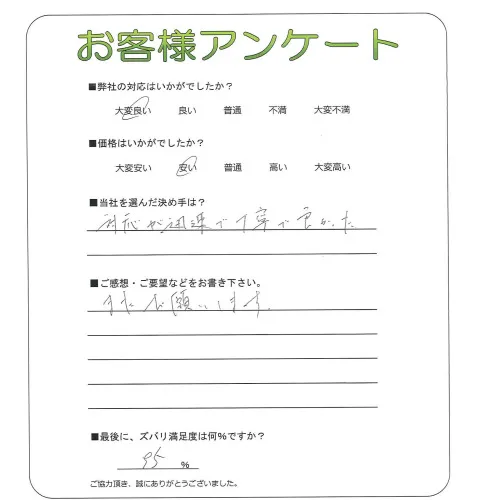 お客様アンケート
■弊社の対応はいかがでしたか？
大変良い 良い 普通 不満 大変不満
■価格はいかがでしたか？
大変安い 安い 普通 高い 大変高い
■当社を選んだ決め手は？
対応が迅速で丁寧で良かった
■ご感想・ご要望などをお書き下さい。
またお願いします。
■最後に、ズバリ満足度は何％ですか？
95 ％
ご協力頂き、誠にありがとうございました。